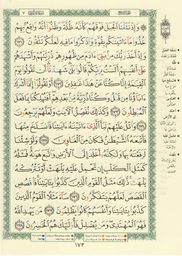 وَإِذْ نَتَقْنَا ٱلْجَبَلَ فَوْقَهُمْ كَأَنَّهُۥ ظُلَّةٌ وَظَنُّوٓا۟ أَنَّهُۥ وَاقِعٌۢ بِهِمْ
خُذُوا۟ مَآ ءَاتَيْنَٰكُم بِقُوَّةٍ وَٱذْكُرُوا۟ مَا فِيهِ لَعَلَّكُمْ تَتَّقُونَ
وَإِذْ أَخَذَ رَبُّكَ مِنۢ بَنِىٓ ءَادَمَ مِن ظُهُورِهِمْ ذُرِّيَّتَهُمْ وَأَشْهَدَهُمْ
عَلَىٰٓ أَنفُسِهِمْ أَلَسْتُ بِرَبِّكُمْ قَالُوا۟ بَلَىٰ شَهِدْنَآ أَن تَقُولُوا۟ يَوْمَ
ٱلْقِيَٰمَةِ إِنَّا كُنَّا عَنْ هَٰذَا غَٰفِلِينَ أَوْ تَقُولُوٓا۟ إِنَّمَآ أَشْرَكَ
ءَابَآؤُنَا مِن قَبْلُ وَكُنَّا ذُرِّيَّةً مِّنۢ بَعْدِهِمْ أَفَتُهْلِكُنَا بِمَا فَعَلَ
ٱلْمُبْطِلُونَ وَكَذَٰلِكَ نُفَصِّلُ ٱلْءَايَٰتِ وَلَعَلَّهُمْ يَرْجِعُونَ
وَٱتْلُ عَلَيْهِمْ نَبَأَ ٱلَّذِىٓ ءَاتَيْنَٰهُ ءَايَٰتِنَا فَٱنسَلَخَ مِنْهَا
فَأَتْبَعَهُ ٱلشَّيْطَٰنُ فَكَانَ مِنَ ٱلْغَاوِينَ وَلَوْ شِئْنَا لَرَفَعْنَٰهُ
بِهَا وَلَٰكِنَّهُۥٓ أَخْلَدَ إِلَى ٱلْأَرْضِ وَٱتَّبَعَ هَوَىٰهُ فَمَثَلُهُۥ
كَمَثَلِ ٱلْكَلْبِ إِن تَحْمِلْ عَلَيْهِ يَلْهَثْ أَوْ تَتْرُكْهُ
يَلْهَث ذَّٰلِكَ مَثَلُ ٱلْقَوْمِ ٱلَّذِينَ كَذَّبُوا۟ بِـَٔايَٰتِنَا فَٱقْصُصِ
ٱلْقَصَصَ لَعَلَّهُمْ يَتَفَكَّرُونَ سَآءَ مَثَلًا ٱلْقَوْمُ ٱلَّذِينَ
كَذَّبُوا۟ بِـَٔايَٰتِنَا وَأَنفُسَهُمْ كَانُوا۟ يَظْلِمُونَ مَن يَهْدِ ٱللَّهُ
فَهُوَ ٱلْمُهْتَدِى وَمَن يُضْلِلْ فَأُو۟لَٰٓئِكَ هُمُ ٱلْخَٰسِرُونَ
١٧٣